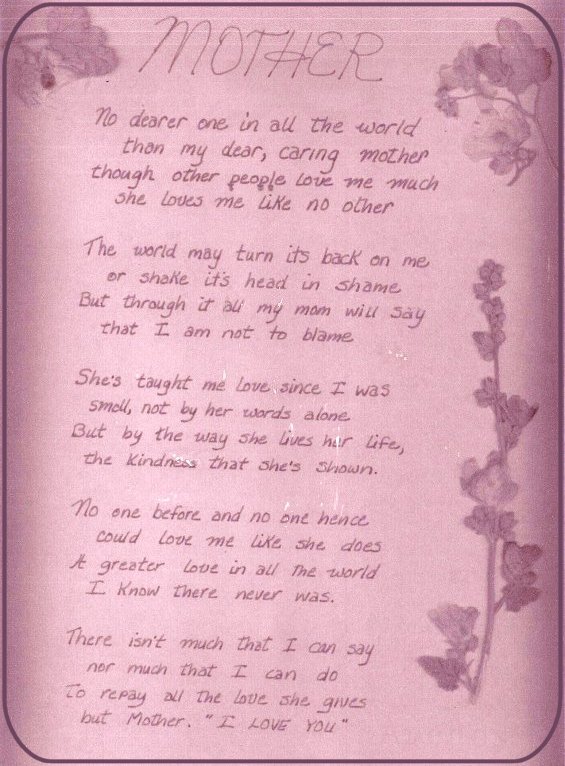 MOTHER
No dearer one in all the world
than my dear, caring mother
though other people love me much
she loves me like no other
The world may turn it's back on me
or shake it's head in shame
But through it all my mom will say
that I am not to blame
She's taught me love since I was
small, not by her words alone
But by the way she lives her life,
the kindness that she's shown.
No one before and no one hence
could love me like she does
A greater love in all the world
I know there never was.
There isn't much that I can say
nor much that I can do
To repay all the love she gives
but Mother. "I LOVE YOU"